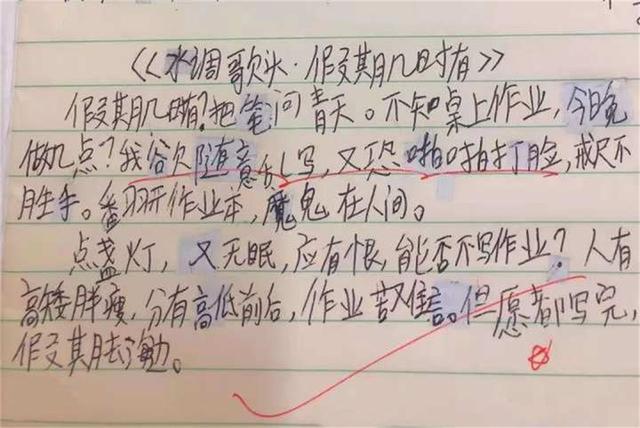 《水调歌头·假期几时有》
假期几时有?把笔问青天。不知桌上作业,今晚
做几点?我欲随意乱写,又恐啪啪打脸,戒尺不
胜手。翻开作业本,魔鬼在人间。
点盏灯,又无眠,应有恨,能否不写作业?人有
高矮胖瘦,分有高低前后,作业苦难言。但愿都写完,
假期去浪。